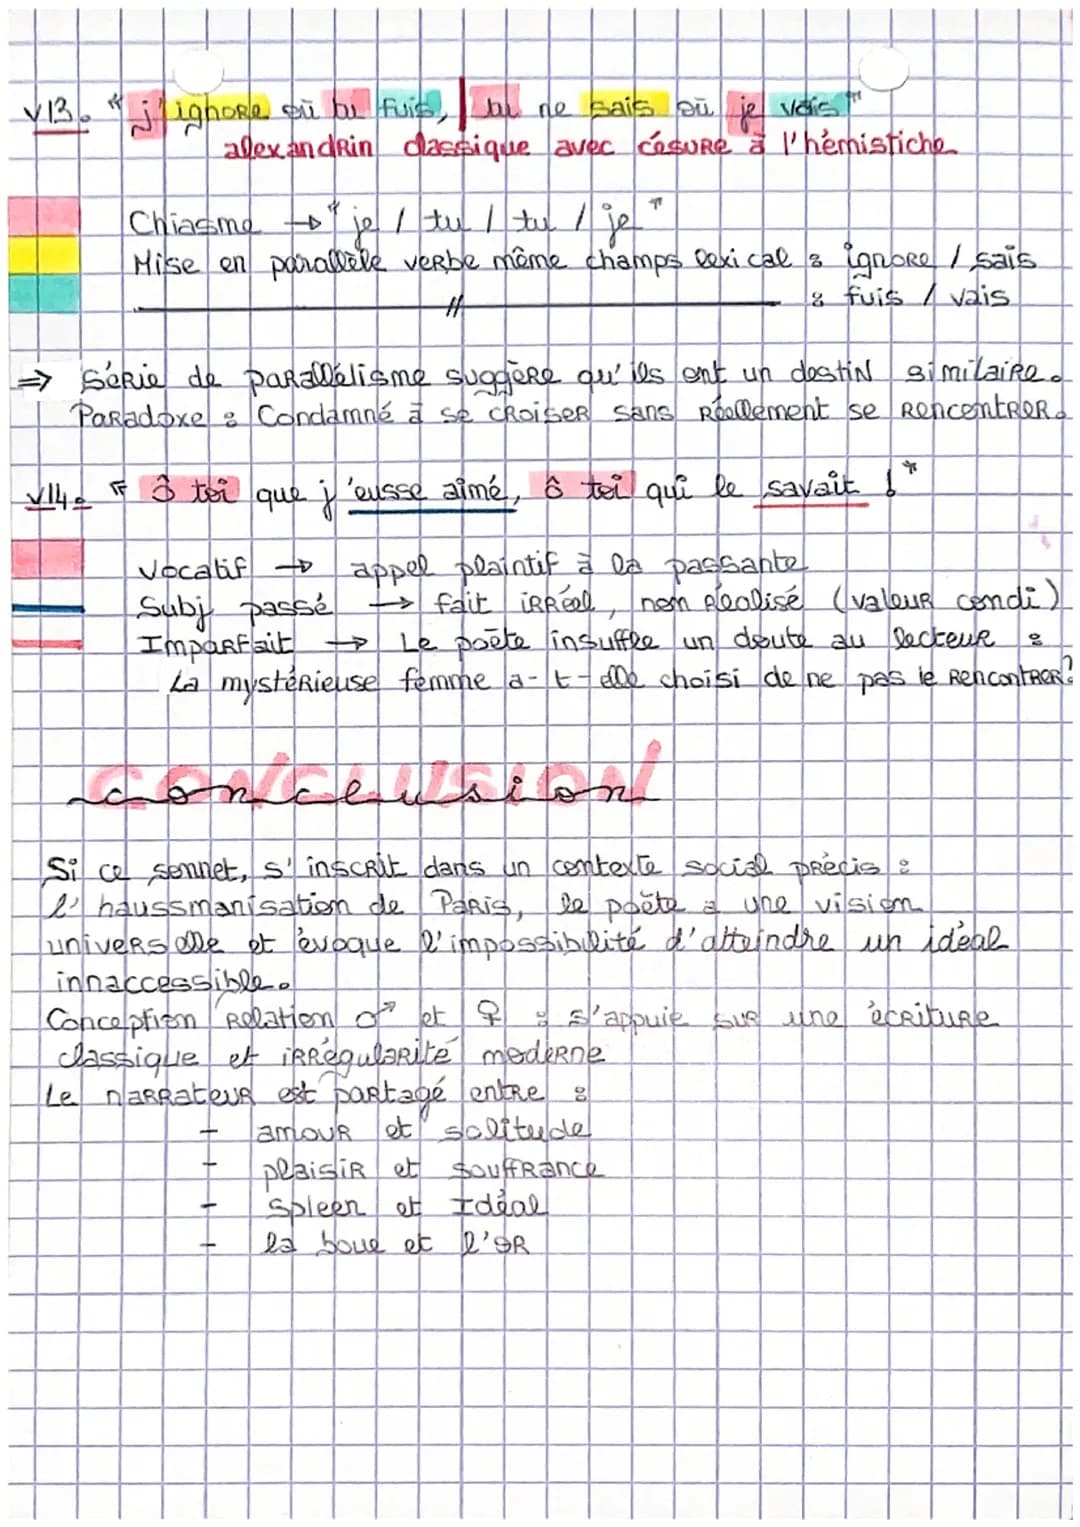 v13. "j'ignore où tu fuis, | tu ne sais où je vais"
alexandrin classique avec césure à l'hémistiche
Chiasme → "je / tu / tu / je"
Mise en parallèle verbe même champs lexical : ignore / sais
// : fuis / vais
⇒ Série de parallélisme suggère qu'ils ont un destin similaire.
Paradoxe : Condamné à se croiser sans réellement se rencontrer.
v14. "ô toi que j'eusse aimé, ô toi qui le savait !"
Vocatif → appel plaintif à la passante
Subj passé → fait irréel, non réalisé (valeur condi)
Imparfait → Le poète insuffle un doute au lecteur :
La mystérieuse femme a-t-elle choisi de ne pas le rencontrer?
CONCLUSION
conclusion
Si ce sonnet, s'inscrit dans un contexte social précis :
l'haussmanisation de Paris, le poète a une vision
universelle et évoque l'impossibilité d'atteindre un idéal
innaccessible.
Conception relation ♂ et ♀ : s'appuie sur une écriture
classique et irrégularité moderne
Le narrateur est partagé entre :
- amour et solitude
- plaisir et souffrance
- Spleen et Idéal
- la boue et l'or